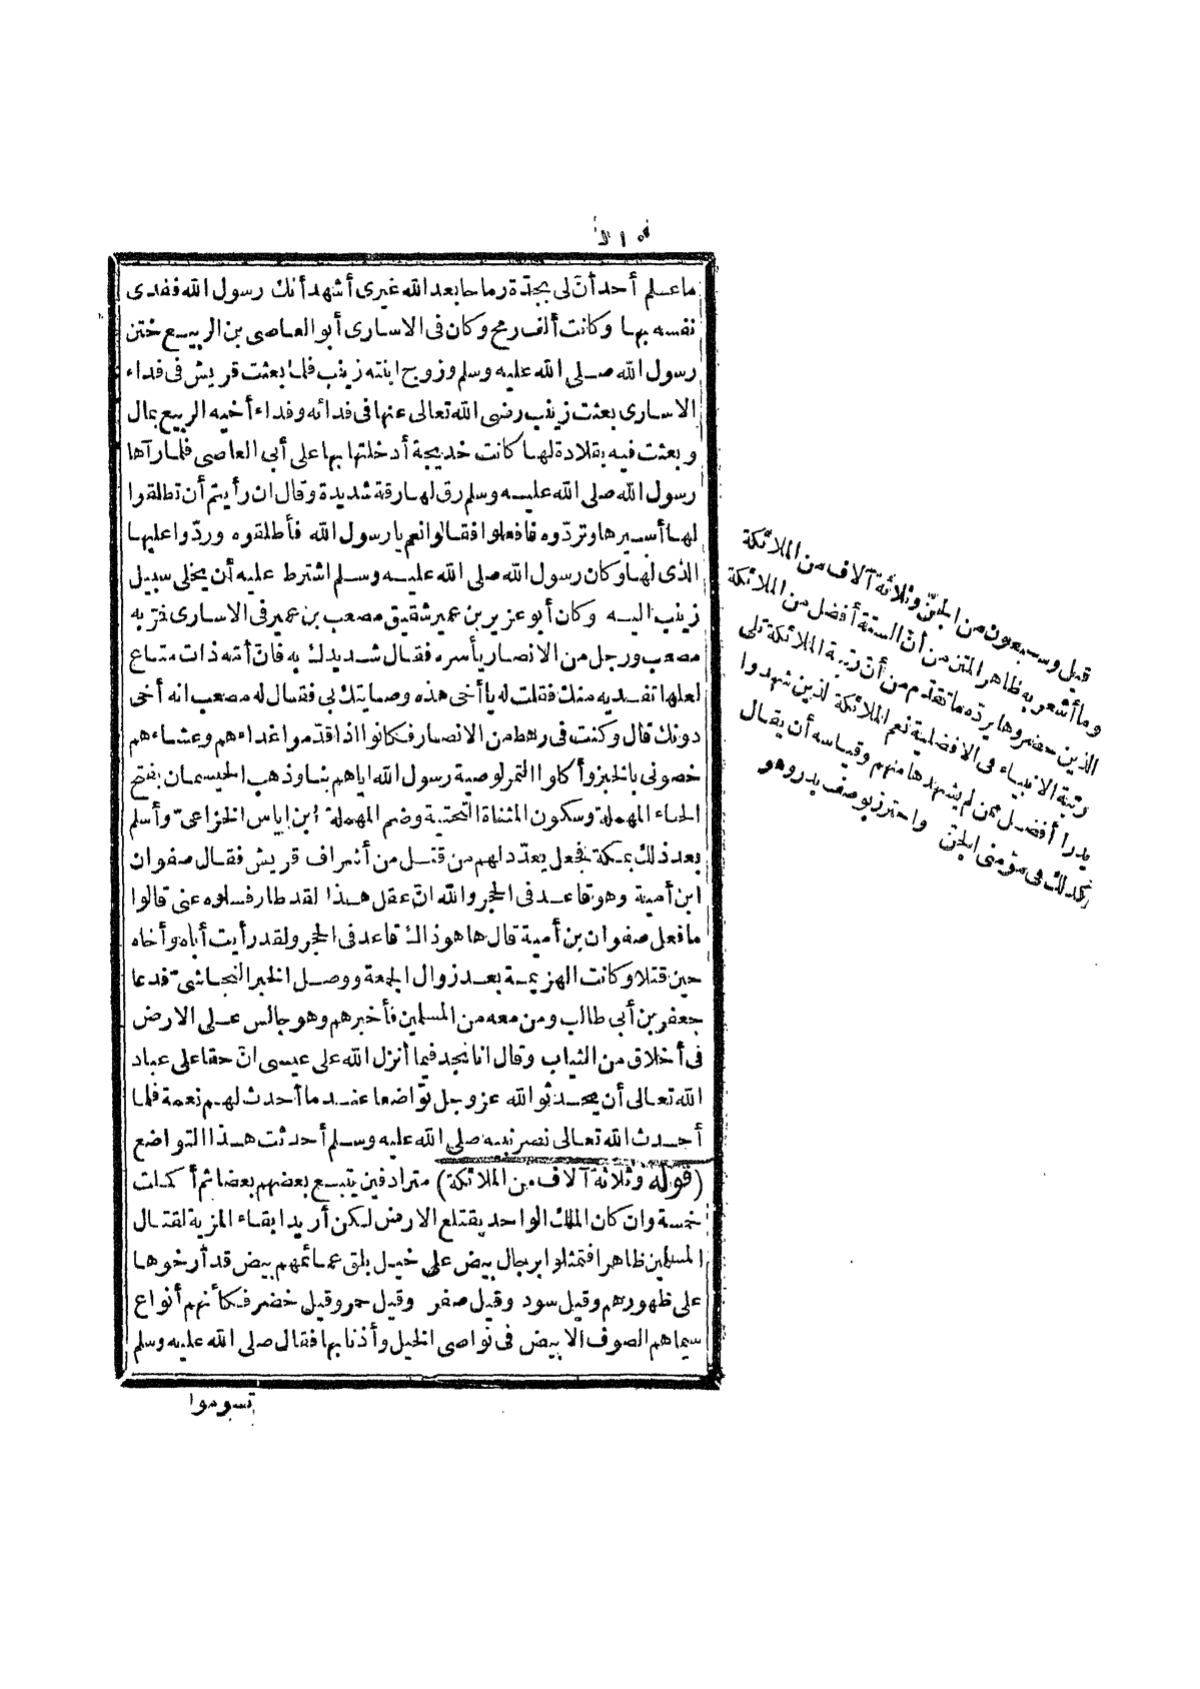 ماعلم أحدأنّ لى بجدّة رماحا بعد الله غيرى أشهد أنك رسول الله ففدى
نفسه بها وكانت ألف رمح وكان فى الاسارى أبو العاصى بن الربيع ختن
رسول الله صلى الله عليه وسلم وزوج ابنته زينب فلما بعثت قريش فى فداء
الاسارى بعثت زينب رضى الله تعالى عنها فى فدائه وفداء أخيه الربيع بمال
وبعثت فيه بقلادة لها كانت خديجة أدخلتها بها على أبى العاصى فلمارآها
رسول الله صلى الله عليه وسلم رق لها رقة شديدة وقال ان رأيتم أن تطلقوا
لها أسيرها وتردّوه فافعلوا فقالوا نعم يارسول الله فأطلقوه وردّوا عليها
الذى لها وكان رسول الله صلى الله عليه وسلم اشترط عليه أن يخلى سبيل
زينب اليه وكان أبو عزير بن عمير شقيق مصعب بن عمير فى الاسارى فمرّ به
مصعب ورجل من الانصار يأسره فقال شد يديك به فانّ أمّه ذات متاع
لعلها تفديه منك فقلت له يا أخى هذه وصيا‌تك بى فقال له مصعب انه أخى
دونك قال وكنت فى رهط من الانصار فكانوا اذا قدّموا غداءهم وعشاءهم
خصونى بالخبز وأكلوا التمر لوصية رسول الله اياهم بنا وذهب الحيسمان بفتح
الحاء المهملة وسكون المثناة التحتية وضم المهملة ابن اياس الخزاعىّ وأسلم
بعد ذلك بمكة فجعل يعدّد لهم من قتل من أشراف قريش فقال صفوان
ابن أمية وهو قاعد فى الحجر والله انّ عقل هذا لقد طار فسلوه عنى قالوا
مافعل صفوان بن أمية قال ها هو ذاك قاعد فى الحجر ولقد رأيت أباه وأخاه
حين قتلا وكانت الهزيمة بعد زوال الجمعة ووصل الخبر النجاشىّ فدعا
جعفر بن أبى طالب ومن معه من المسلمين فأخبرهم وهو جالس على الارض
فى أخلاق من الثياب وقال انا نجد فيما أنزل الله على عيسى انّ حقا على عباد
الله تعالى أن يحدثوا لله عز وجل تواضعا عند ما أحدث لهم نعمة فلما
أحدث الله تعالى نصر نبيه صلى الله عليه وسلم أحدثت هذا التواضع
(قوله وثلاثة آلاف من الملائكة) مترادفين يتبع بعضهم بعضا ثم أكملت
خمسة وان كان الملك الواحد يقتلع الارض لكن أريد ابقاء المزية لقتال
المسلمين ظاهرا فتمثلوا برجال بيض على خيل بلق عمائمهم بيض قد أرخوها
على ظهورهم وقيل سود وقيل صفر وقيل حمر وقيل خضر فكأنهم أنواع
سيماهم الصوف الابيض فى نواصى الخيل وأذنابها فقال صلى الله عليه وسلم
تسوموا
قيل وسبعون من الجنّ وثلاثة آلاف من الملائكة
وما أشعر به ظاهر المتن من أنّ الستة أفضل من الملائكة
الذين حضروها يردّه ما تقدّم من أنّ رتبة الملائكة تلى
رتبة الانبياء فى الافضلية نعم الملائكة الذين شهدوا
بدرا أفضل ممن لم يشهدها منهم وقياسه أن يقال
كذلك فى مؤمنى الجنّ واحترز بوصف بدر وهو